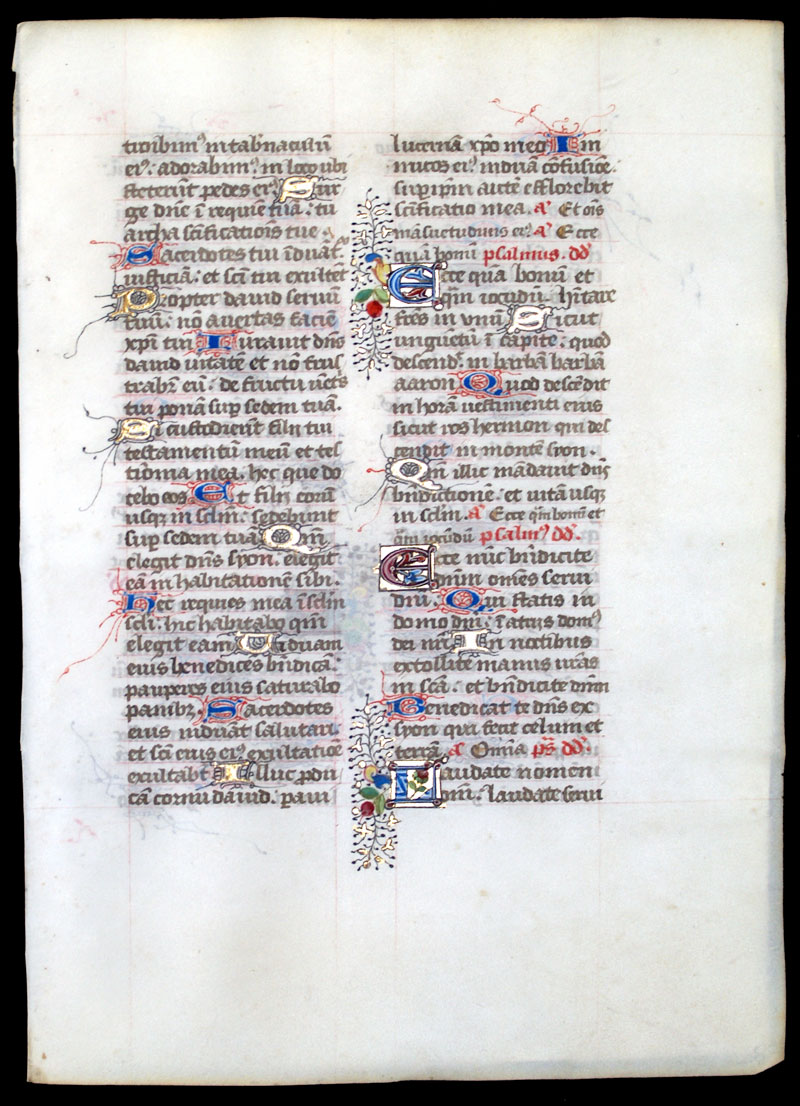 troibim⁹ in tab̃naculũ
ei⁹. adorabim⁹. in loco ubi
steterũt pedes ei⁹. Sur
ge dñe ĩ requiẽ tuã. tu
archa sc̃ificatiõis tue.
Sacerdotes tui ĩduãt̃
iusticiã. et sc̃i tui exultẽt
Propter dauid seruũ
tuũ. nõ auertas faciẽ
xp̃i tui Iurauit dñs
dauid uitatẽ et nõ frus
trabit̃ eũ. de fructu uẽts
tui ponã sup sedem tuã.
Si custodierĩt filii tui
testamentũ meũ et tes
tiõnia mea. hec que do
cebo eos Et filii eorũ
usqꝫ in sclm̃. sedebunt
sup sedem tuã Qm̃
elegit dñs syon. elegit
eã in habitationẽ sibi.
Hec requies mea ĩ sclm̃
scli. hic habitabo qm̃
elegi eam Uiduam
eius benedices bñdicã.
pauperes eius saturabo
panibꝫ. Sacerdotes
eius induãt salutari.
et sc̃i eius ei⁹ exultatiõe
exultabt̃ Illuc ꝓdu
cã cornu dauid. paui
lucernã xp̃o meo In
micos ei⁹ induã cõfusiõe.
sup ip̃m autẽ efflorebit
sc̃ificatio mea. a Et oĩs
mãsuetudinis ei⁹. a Ecce
quã bonũ psalmus. dd
Ecce quã bonũ et
q̃m iocũdũ. hitare
frẽs in unũ Sicut
unguẽtũ ĩ capite. quod
descend. in barbã barbã
aaron Quod descẽdit
in horã uestimenti eius
sicut ros hermon qui des
cendit in montẽ syon.
Qm̃ illic mãdauit dñs
bñdictionẽ. et uitã usqꝫ
in sclm̃. a Ecce q̃m bonũ et
q̃m iocũdũ psalm⁹ dd.
Ecce nũc bñdicite
dñm omẽs serui
dñi. Qui statis in
domo dñi. ĩ atriis dom⁹
dei nr̃i In noctibus
extollite manus ur̃as
in sc̃a. et bñdicite dñm
Benedicat te dñs ex
syon qui fecit celum et
terrã. a Omĩa ps̃ dd.
Laudate nomen
dñi. laudate serui